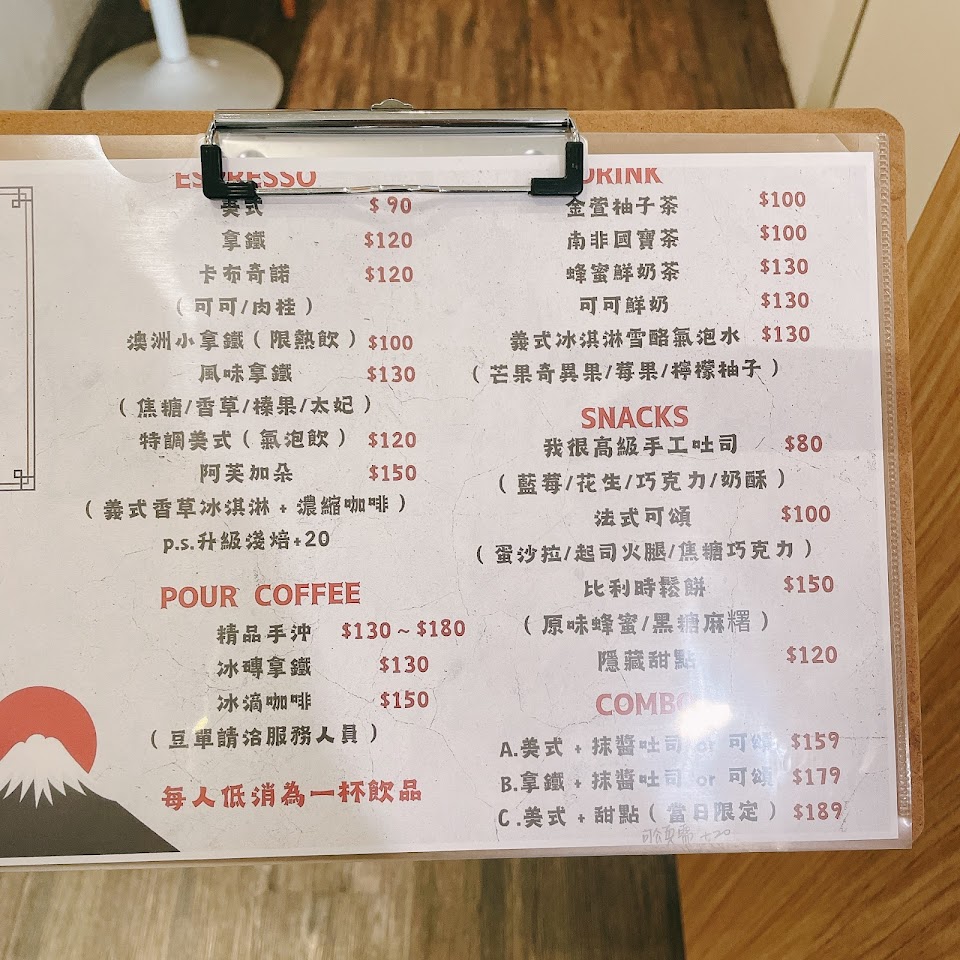 ESPRESSO
美式 $90
拿鐵 $120
卡布奇諾 $120
(可可/肉桂)
澳洲小拿鐵(限熱飲) $100
風味拿鐵 $130
(焦糖/香草/榛果/太妃)
特調美式(氣泡飲) $120
阿芙加朵 $150
(義式香草冰淇淋+濃縮咖啡)
p.s.升級淺焙+20
POUR COFFEE
精品手沖 $130~$180
冰磚拿鐵 $130
冰滴咖啡 $150
(豆單請洽服務人員)
每人低消為一杯飲品
DRINK
金萱柚子茶 $100
南非國寶茶 $100
蜂蜜鮮奶茶 $130
可可鮮奶 $130
義式冰淇淋雪酪氣泡水 $130
(芒果奇異果/莓果/檸檬柚子)
SNACKS
我很高級手工吐司 $80
(藍莓/花生/巧克力/奶酥)
法式可頌 $100
(蛋沙拉/起司火腿/焦糖巧克力)
比利時鬆餅 $150
(原味蜂蜜/黑糖麻糬)
隱藏甜點 $120
COMBO
A.美式+抹醬吐司 or 可頌 $159
B.拿鐵+抹醬吐司 or 可頌 $179
C.美式+甜點(當日限定) $189
+20